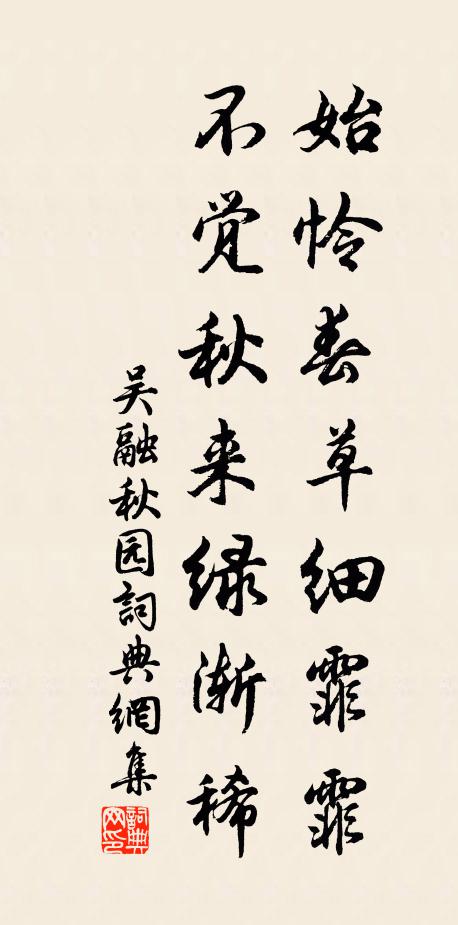 始怜春草细霏霏
不觉秋来绿渐稀
吴融秋园詞典網集
詞典网印